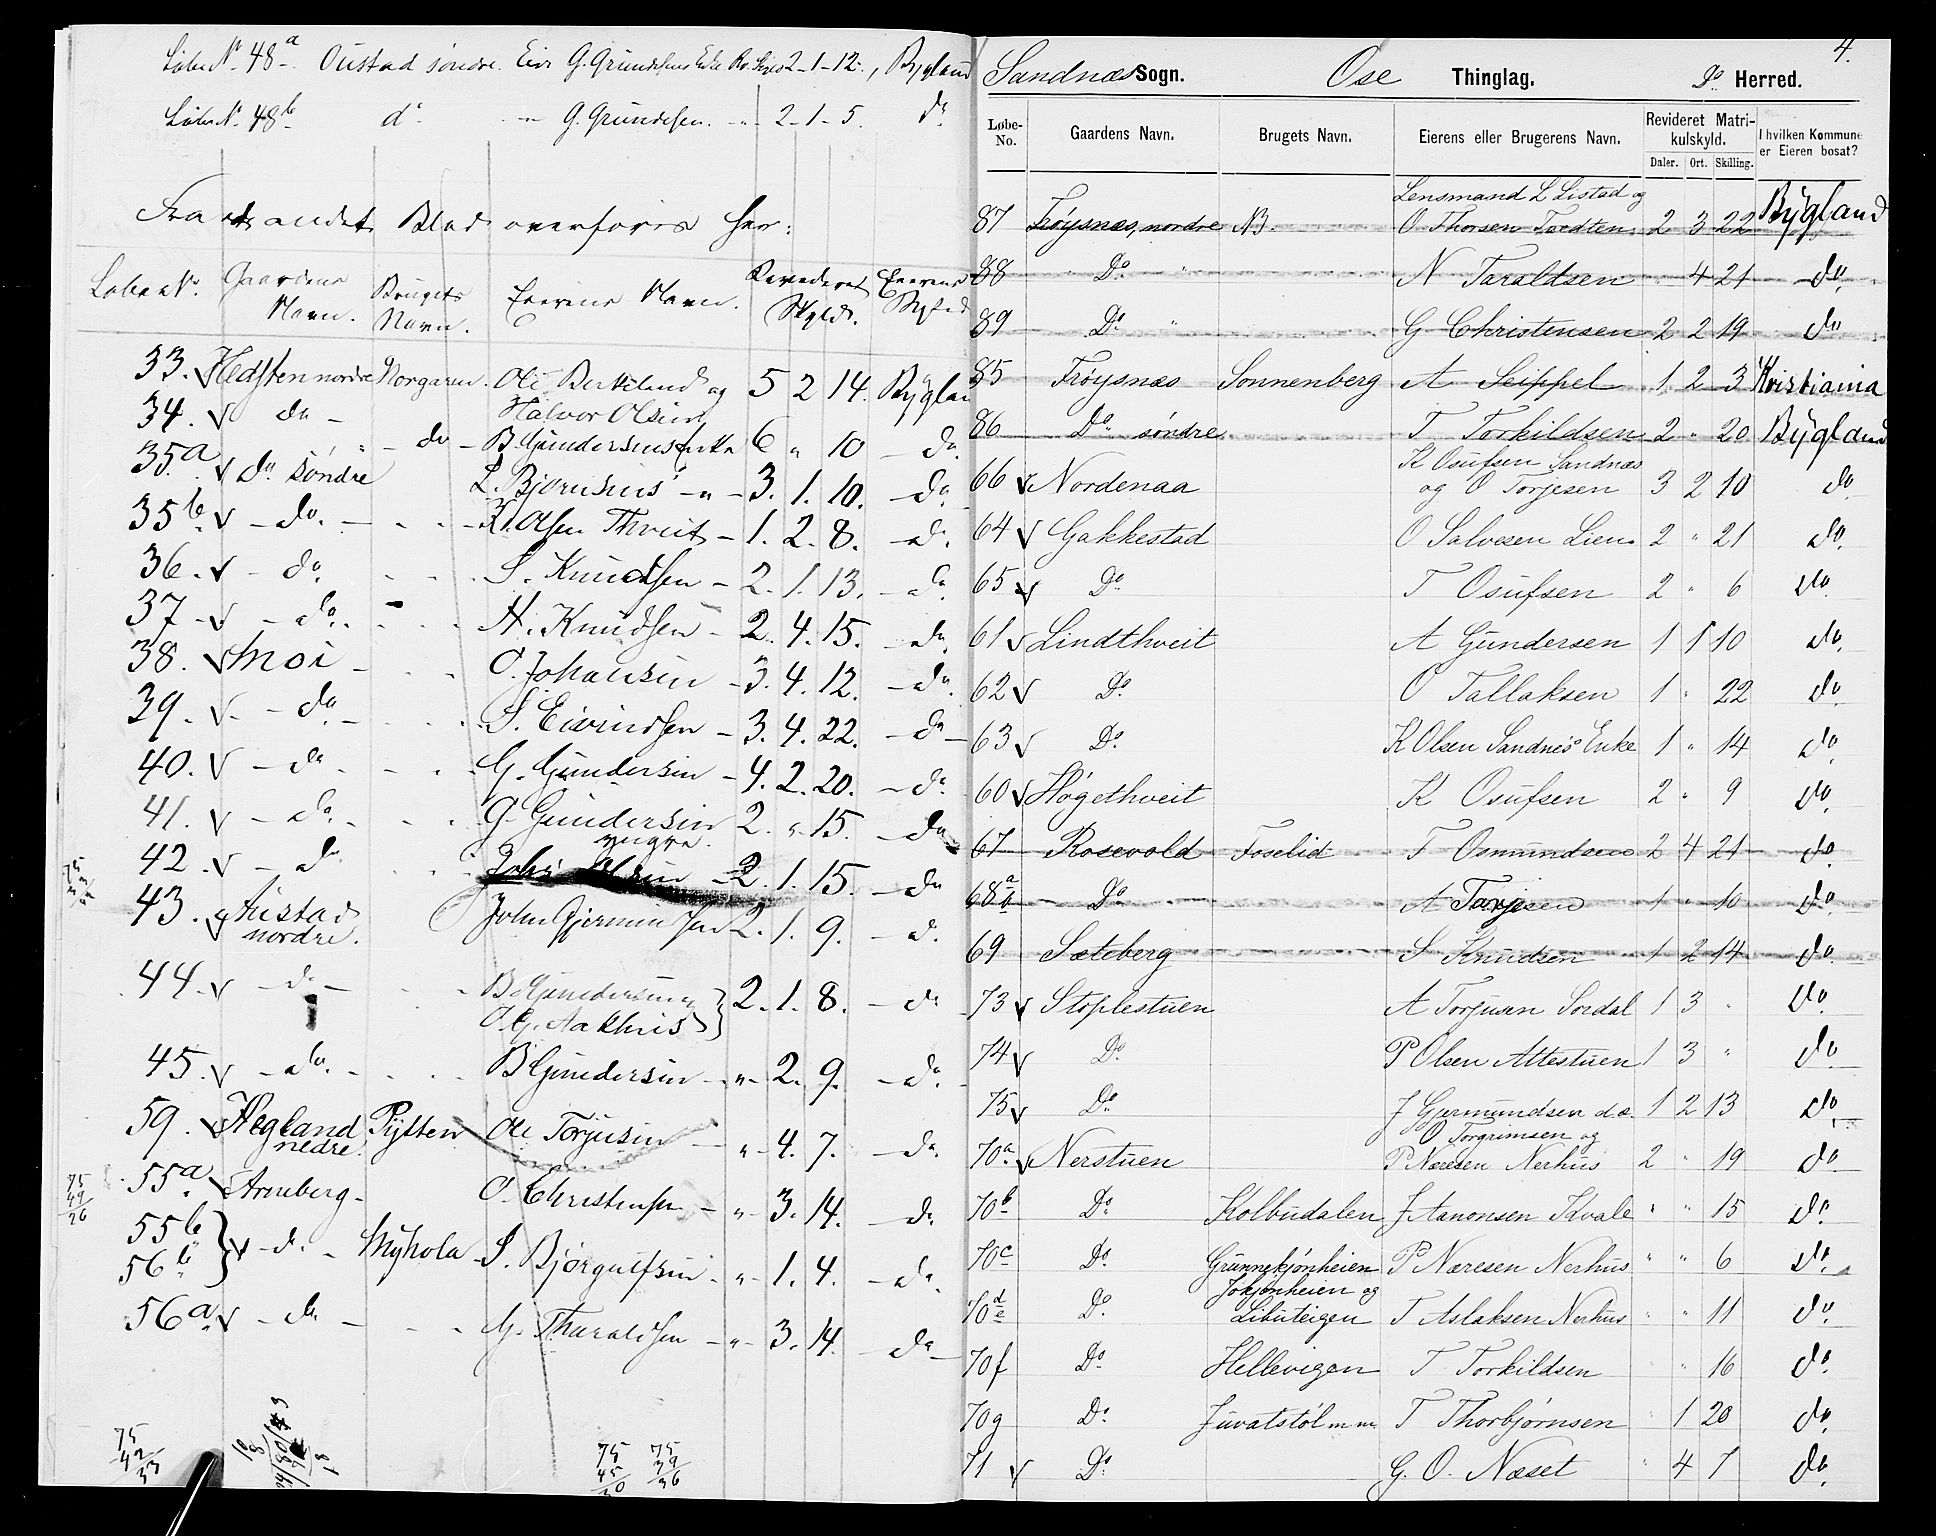 Löbe Nr. 48 a. Oustad søndre. Eier G. Grundesens Enke Rv. Skyld 2-1-12., Bygland
Löbe Nr. 48 b. do - " G. Grundesen. - " - 2-1-5. do
andet Blad overføres her:
Løbe No. Gaardens Navn. Brugets Navn. Eierens Navn. Revideret Skyld. Eierens Bysted
33. v Hedsten nordre Norgaren. Ole Berkeland og Halvor Olsen 5 2 14. Bygland
34. v do - " - do - B. Gundersens Enke 6 " 10 - do.
35.a v do. søndre L. Bjørnsens - " - 3. 1. 10. - do
35 b. v - do. - - - K. Olsen Thveit - 1. 2. 8. - do.
36. v - do. - - - S. Knudsen - 2. 1. 13. - do.
37 - v - do. - - - H. Knudsen - 2. 4. 15. - do.
38. v Moi - - - O. Johansen - 3. 4. 12. - do.
39. v. - do - - - - S. Eivindsen - 3. 4. 22. - do -
40. v - do - - - G. Gundersen - 4. 2. 20. - do.
41. v - do. - - - G. Gundersen yngre. 2. " 15. - do
42. v - do - - 2. 1. 15. - do
43. v Austad nordre. John Gjermundsen 2. 1. 9. - do.
44. v - do - - - B. Gundersen og O. G. Aakhus } 2. 1. 8. - do
45. v - do. - - - B Gundersen - " - 2. 9. - do.
59. v Hegland nedre. Pytten Ole Torjusen - " - 4. 7. - do.
55 a v Arneberg - O. Christensen - " - 3. 14. - do.
55 b
56 b. } v - do. - Myhola - S. Bjørgulfsen - " - 1. 4. - do.
56 a. v - do - - - G. Tharaldsen - " - 3. 14. - do -
75
49
26
75
42
33
75
45
30
75
39
36
4.
Sandnæs Sogn. Ose Thinglag. Do Herred.
Løbe-No. Gaardens Navn. Brugets Navn. Eierens eller Brugerens Navn. Revideret Matrikulskyld. I hvilken Kommune er Eieren bosat?
Daler. Ort. Skilling.
87 Frøysnæs, nordre NB. Lensmand L Listad og O Thorsen Tvedten. 2 3 22 Bygland
88 " Do " N Taraldsen " 4 21 do.
89 Do " G Christensen 2 2 19 do
85 Frøysnæs Sonnenberg A Seippel 1 2 3 Kristiania
86 Do søndre T Torkildsen 2 " 20 Bygland
66 v Nordenaa K Osufsen Sandnæs og O Torjesen 3 2 10 do
64 v Gakkestad O Salvesen Lien. 2 " 21 do.
65 v Do T Osufsen 2 " 6 do.
61 v Lindthveit A Gundersen 1 1 10 do.
62 v Do. O Tallaksen 1 " 22 do
63 v Do. K Olsen Sandnæs Enke 1 " 14 do
60 v Høgethveit K Osufsen 2 " 9 do.
67 Rosevold Foselid T Osmundsen 2 4 21 do
68 a b Do A Tarjesen 1 " 10 do.
69 Sæteberg S Knudsen 1 2 14 do.
73 v Stoplestuen A Torjusen Sordal 1 3 " do.
74 v Do. P Olsen Attestuen 1 3 " do.
75 v Do. J Gjermundsen d.æ. 1 2 13 do.
70 a. v Nerstuen O Torgrimsen og P Næresen Nerhus 2 " 19 do.
70 b Do. Kolbudalen J Aanonsen Kvale " " 15 do.
70 c Do. Grunnekjønheien P Næresen Nerhus " " 6 do.
70 d e Do. Jokjønheien og Libuteigen T Aslaksen Nerhus " " 11 do.
70 f Do. Hellevigen T Torkildsen " " 16 do.
70 g Do. Juvatstøl m m T Thorbjørnsen " 1 20 do.
71 v Do. G. O. Næset " 4 7 do.